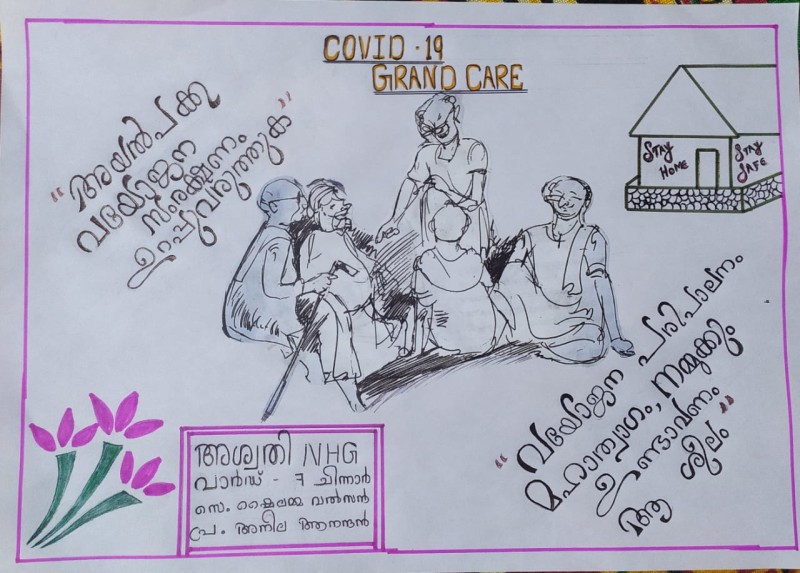 COVID-19
GRAND CARE
"അയൽപക്ക
വയോജന
സംരക്ഷണം
ഉറപ്പുവരുത്തുക"
STAY
HOME
STAY
SAFE
"വയോജന പരിപാലനം
മഹാത്യാഗം, നമ്മുക്കും
ഉണ്ടാവണം
ആ ശീലം"
അശ്വതി NHG
വാർഡ് - 7 ചിന്നാർ
സെ. ഷൈലമ്മ വൽസൻ
പ്ര. അനില ആനന്ദൻ